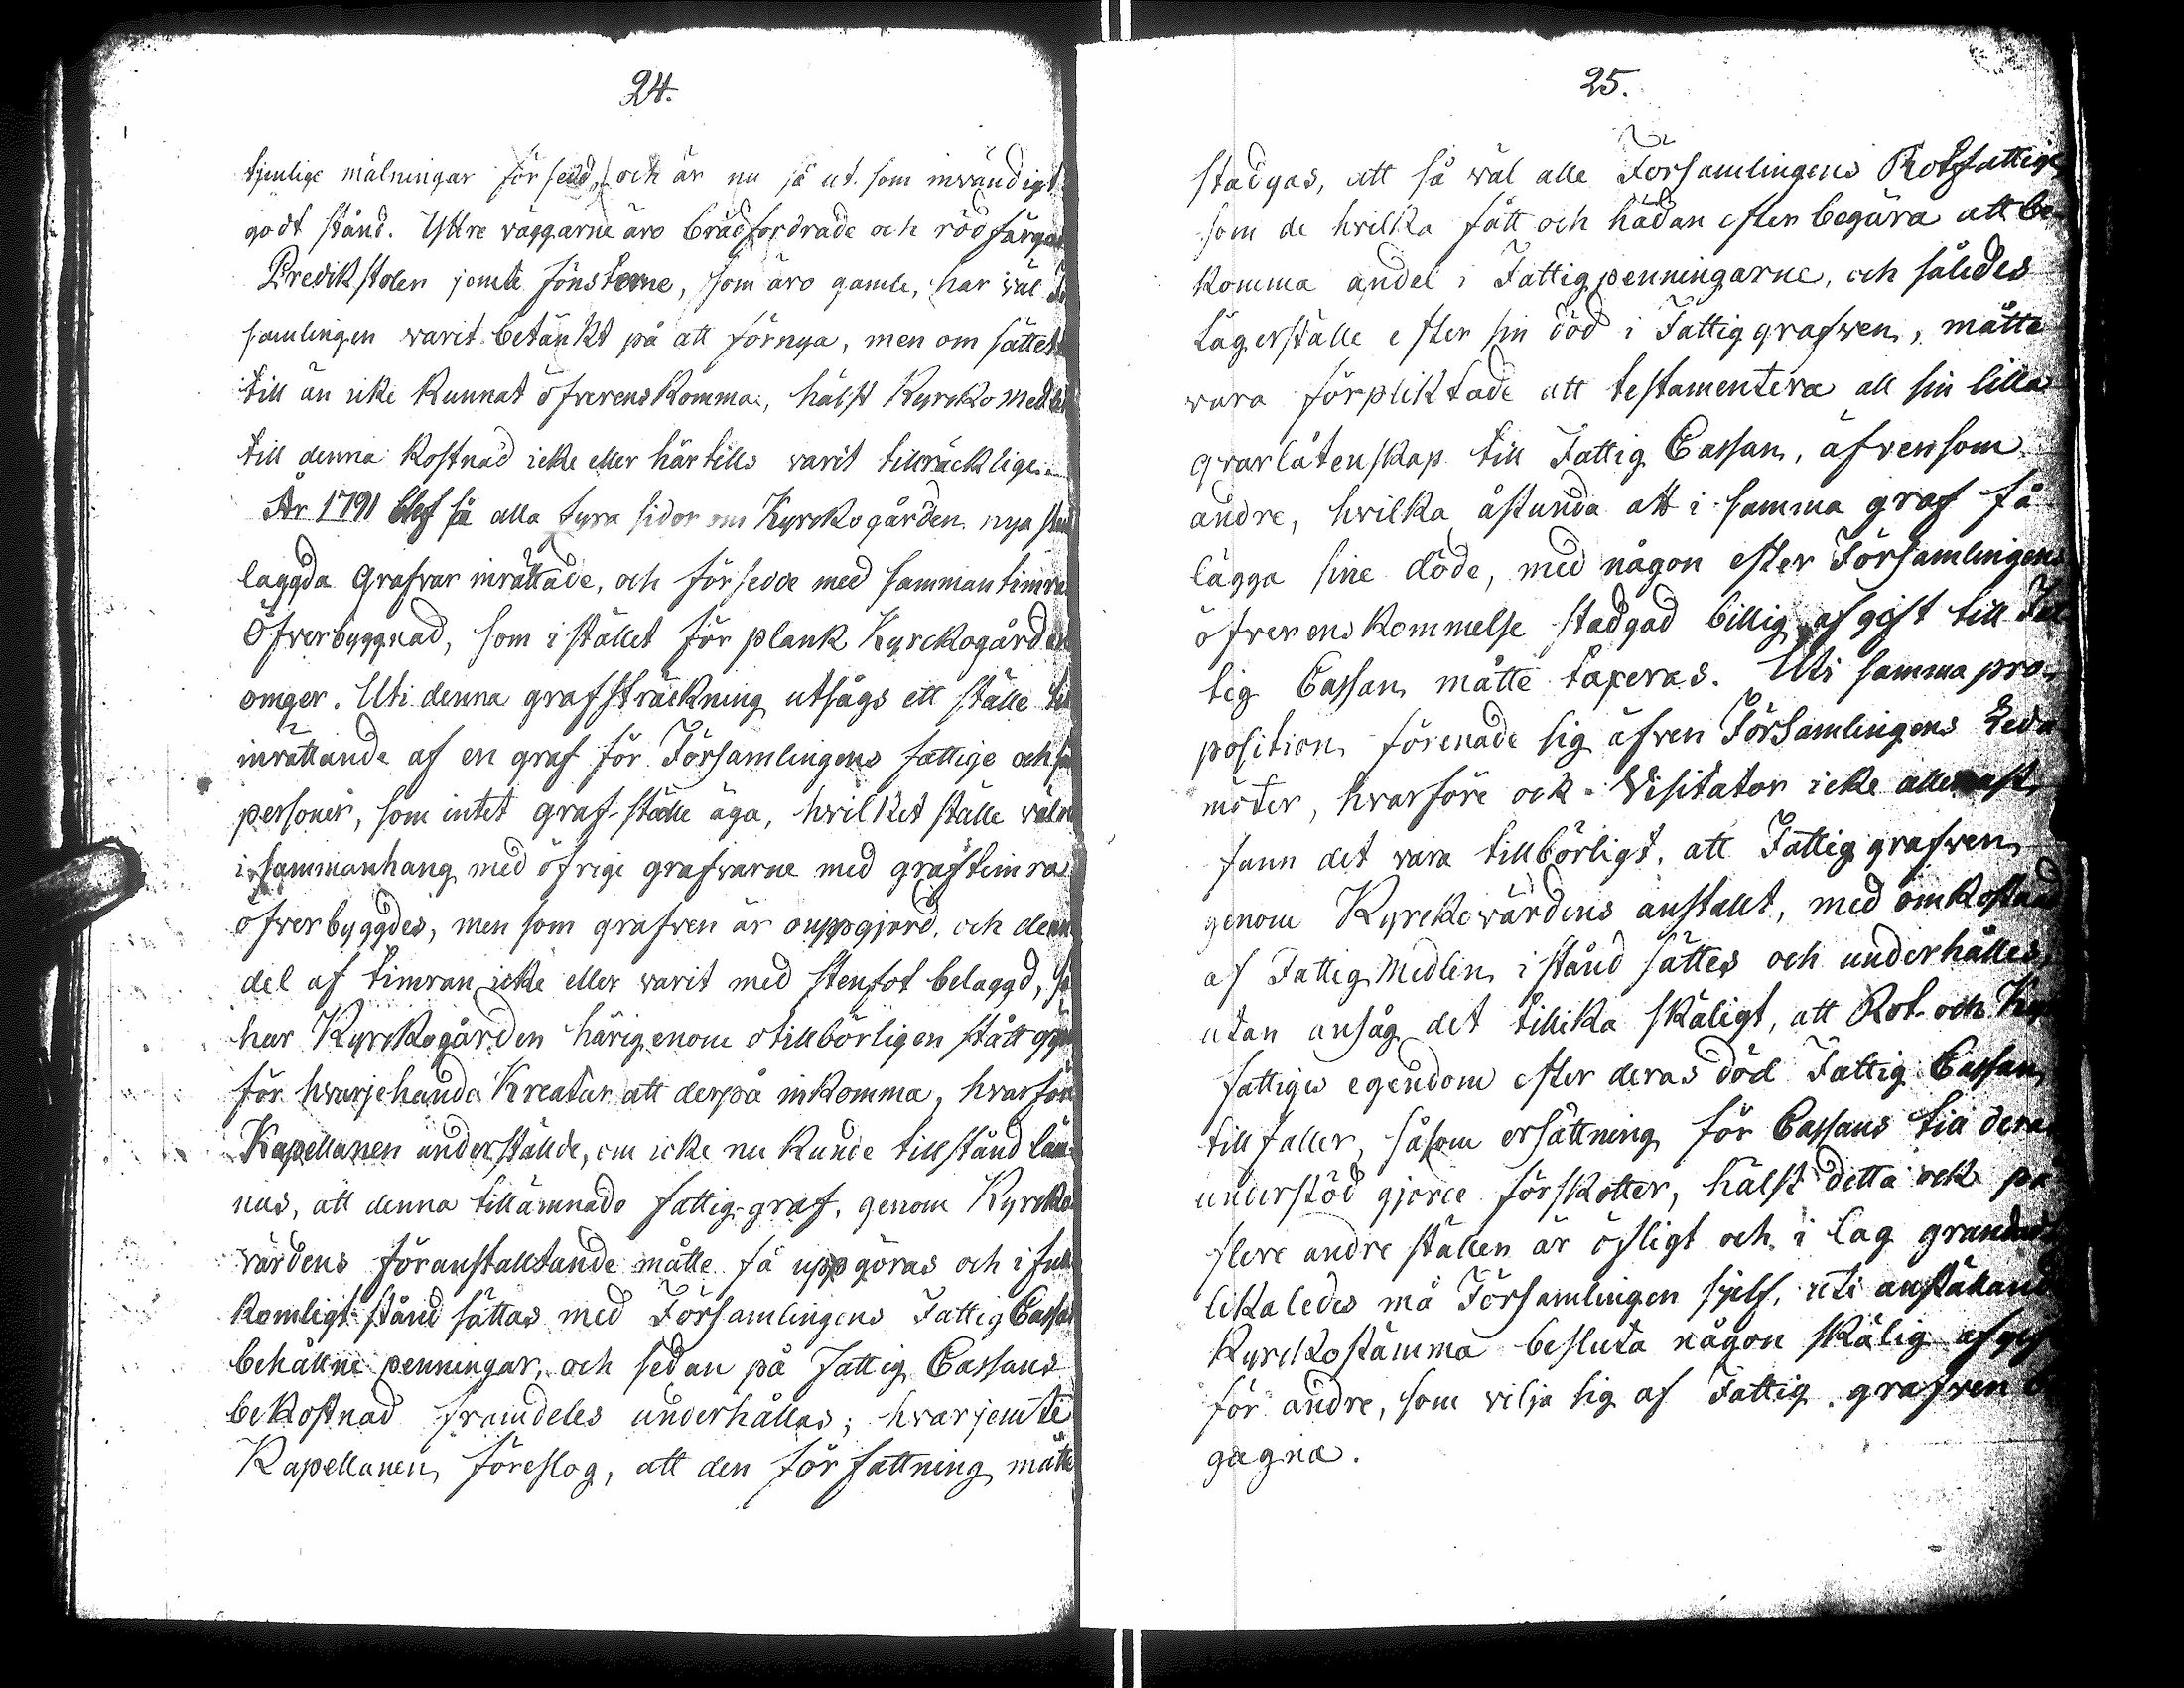 24.
tjenlige målningar försedd, och är nu så ut som invändigt
godt stånd. Yttre väggarne äro brädfordrade och rödfärgat
Predikstolen jemte fönsterne, som äro gamle, har väl
samlingen varit betänkt på att förnya, men om sättet
till än icke kunnat öfverenskomma, hälst Kyrcko medlet
till denna kostnad icke eller härtills varit tillräcklige.
År 1791 blef på alla fyra sidor om Kyrckogården nya
laggda Grafvar inrättade, och försedde med sammantimra
Öfverbyggnad, som i stället för plank Kyrckogården
omger. Uti denna grafsträckning utsågs ett ställe till
inrättande af en graf för Församlingens fattige och
personer, som intet graf-ställe äga, hvilket ställe väl
i sammanhang med öfrige grafvarne med graftimra
öfverbyggdes, men som grafven är ouppgjord, och denn
del af timran icke eller varit med stenfot belaggd, så
har Kyrckogården härigenom otillbörligen stått
för hvarjehanda Kreatur att derpå inkomma, hvarföre
Kapellanen underställde, om icke nu kunde tillstånd läm-
nas, att denna tillämnade fattig-graf, genom Kyrcko-
värdens föranstalltande måtte få uppgöras och i full
komligt stånd sättas med Församlingens Fattig Cassas
behållne penningar, och sedan på Fattig Cassans
bekostnad framdeles underhållas; hvarjemte
Kapellanen föreslog, att den författning måtte
25.
stadgas, att så väl alle Församlingens Rotfattige,
som de hvilka fått och hädan efter begära att be-
komma andel i Fattigpenningarne, och således
Lägerställe efter sin död i Fattiggrafven, måtte
vara förpliktade att testamentera all sin lilla
qvarlåtenskap till Fattig Cassan, äfvensom
andre, hvilka åstunda att i samma graf få
lägga sine döde, med någon efter Församlingens
öfverenskommelse stadgad billig afgift till Fat
tig Cassan måtte taxeras. Uti samma pro-
position förenade sig äfven Församlingens Leda
möter, hvarföre ock Visitator icke allenast
fann det vara tillbörligt, att Fattiggrafven
genom Kyrckovärdens anstallt, med omkostnad
af Fattig Medlen i stånd sättes och underhålles,
utan ansåg det tillika skäligt, att Rot- och Kyr
fattiges egendom efter deras död Fattig Cassan
tillfaller, såsom ersättning för Cassans till deras
understöd gjorde förskotter, hälst detta ock på
flere andre ställen är öfligt och i lag grundadt
likaledes må Församlingen sjelf, uti anställande
Kyrckostämma besluta någon skälig afgift
för andre, som vilja sig af Fattig grafven be
gagna.